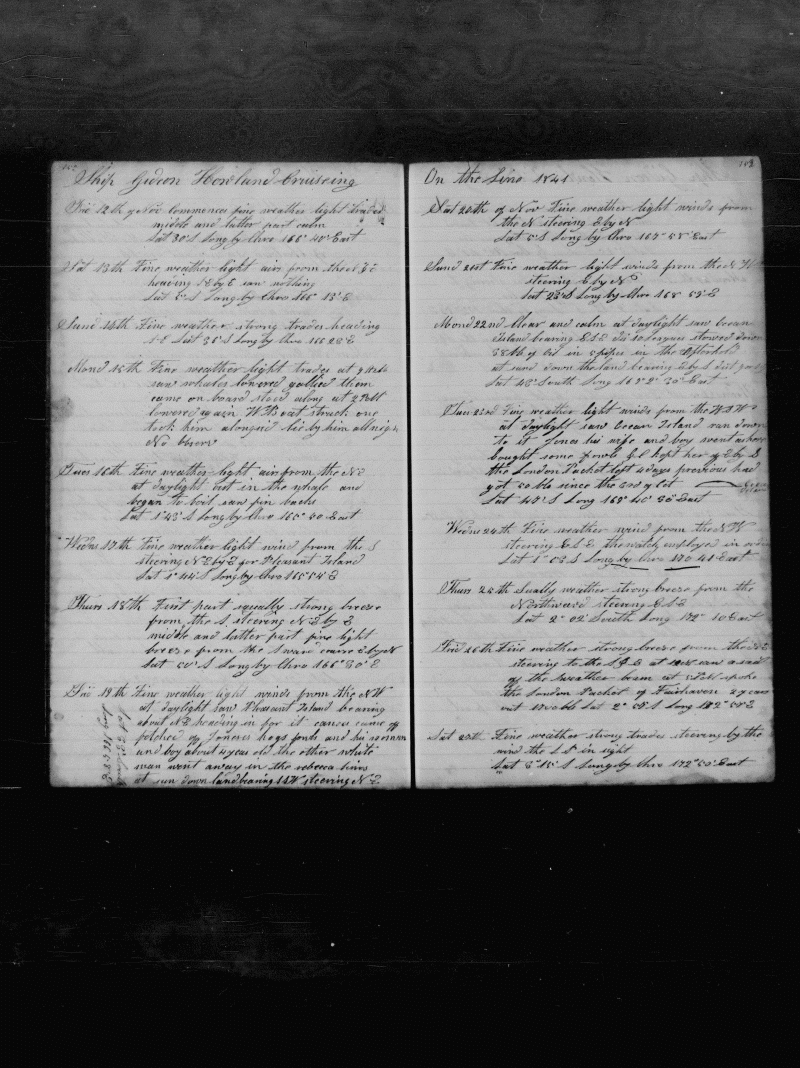 102
Ship Gideon Howland Cruiseing
Frid 12th of Nov Commences fine weather light trades
middle and latter part calm
Lat 30' S Long by Chro 166° 40' East
Sat 13th Fine weather light airs from the N E
heading N by E saw nothing
Lat 5' S Long by Chro 166° 13' E
Sund 14th Fine weather strong trades heading
S E Lat 35' S Long by Chro 166 23' E
Mond 15th Fine weather light trades at
saw whales lowered gallied them
came on board stood along at
lowered again W B oat struck one
took him alongsid lie by him all night
No observ
Tues 16th Fine weather light airs from the N E
at daylight cut in the whale and
began to boil saw fin backs
Lat 1° 43' S Long by Chro 166° 50' East
Weons 17th Fine weather light wind from the S
steering N E by E for Pleasant Island
Lat 1° 44' S Long by Chro 166° 54' E
Thurs 18th First part squally strong breeze
from the S steering N E by E
middle and latter part fine light
breeze from the S ward course E by N
Lat 50' S Long by Chro 166° 30' E
Frid 19th Fine weather light winds from the N W
at daylight saw Pleasant Island bearing
about N E heading in for it canoes came of
fetched of Joneses hogs and his woman
and boy about 4 years old the other white
man went away in the rebecca sims
at sun down land bearing S S W steering N E
103
On the Line 1841
Sat 20th of Nov Fine weather light winds from
the N steering E by N
Lat 5' S Long by Chro 167° 58' East
Sund 21st Fine weather light winds from the N W
steering E by N
Lat 23' S Long by Chro 168° 53' E
Mond 22nd Clear and calm at daylight saw Ocean
Island bearing E S E dis 10 leagues stowed down
38 bb of oil in 5 pipes in the Afterhold
at sund down the land bearing E by S
Lat 43' South Long 169° 2' 30" East
Tues 23rd Fine weather light winds from the W S W
at daylight saw Ocean Island ran down
to it Jones his wife and boy went ashore
bought some fowls &c kept her of E by S
the London Packet left 4 days previous had
got 50 bb since the 3rd of Oct
Lat 48' S Long 169° 40' 30" East
Weons 24th Fine weather wind from the N W
steering E S E the watch employed in
Lat 1° 03' S Long by Chro 170° 41' East
Thurs 25th Sually weather strong breeze from the
Northward steering E S E
Lat 2° 02' South Long 172° 10' East
Frid 26th Fine weather strong breeze from the
steering to the S & E at saw a sail
of the weather beam at spoke
the London Packet of Fairhaven 2 years
out 1700 bb Lat 2° 58' S Long 172° 58' E
Sat 27th Fine weather strong trades steering by the
wind the L P in sight
Lat 3° 15' S Long by Chro 172° 50' East